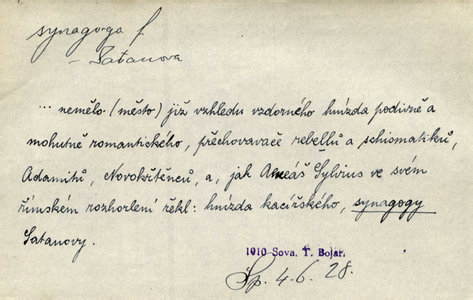 synagoga f.
– Satanova
... nemělo (město) již vzhledu vzdorného hnízda podivně a
mohutně romantického, přechovavače rebellů a schismatiků,
Adamitů, Novokřtěnců, a, jak Aeneáš Sylvius ve svém
římském rozhorlení řekl: hnízda kacířského, synagogy
Satanovy.
1910 Sova, T. Bojar.
Šp. 4.6.28.